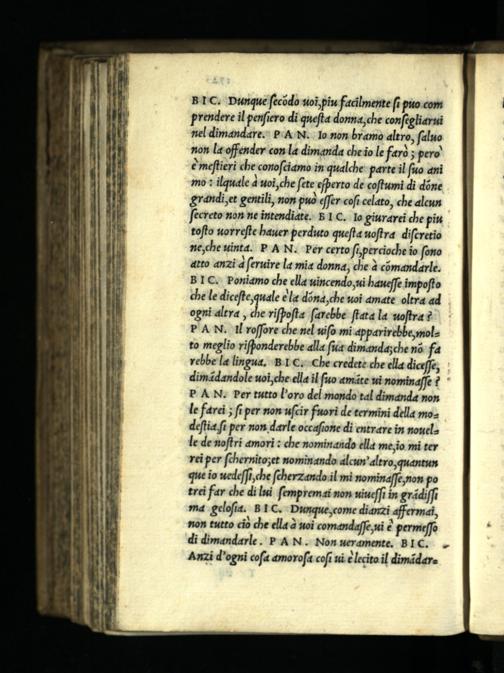 BIC. Dunque secōdo uoi,piu facilmente si puo com
prendere il pensiero di questa donna,che consegliarui
nel dimandare. PAN. Io non bramo altro, saluo
non la offender con la dimanda che io le farò; però
è mestieri che conosciamo in qualche parte il suo ani
mo: ilquale à uoi,che sete esperto de costumi di dōne
grandi,et gentili, non può esser cosi celato, che alcun
secreto non ne intendiate. BIC. Io giurarei che piu
tosto uorreste hauer perduto questa uostra discretio
ne,che uinta. PAN. Per certo si,percioche io sono
atto anzi à seruire la mia donna, che à cōmandarle.
BIC. Poniamo che ella uincendo,ui hauesse imposto
che le diceste,quale è la dōna,che uoi amate oltra ad
ogni altra, che risposta sarebbe stata la uostra?
PAN. Il rossore che nel uiso mi apparirebbe,mol-
to meglio risponderebbe alla sua dimanda;che nō fa
rebbe la lingua. BIC. Che credete che ella dicesse,
dimādandole uoi,che ella il suo amāte ui nominasse?
PAN. Per tutto l'oro del mondo tal dimanda non
le farei; si per non uscir fuori de termini della mo-
destia,si per non darle occasione di entrare in nouel-
le de nostri amori: che nominando ella me,io mi ter
rei per schernito;et nominando alcun'altro,quantun
que io uedessi,che scherzando il mi nominasse,non po
trei far che di lui sempremai non uiuessi in grādissi
ma gelosia. BIC. Dunque,come dianzi affermai,
non tutto ciò che ella à uoi comandasse,ui è permesso
di dimandarle. PAN. Non ueramente. BIC.
Anzi d'ogni cosa amorosa cosi ui è lecito il dimādar-